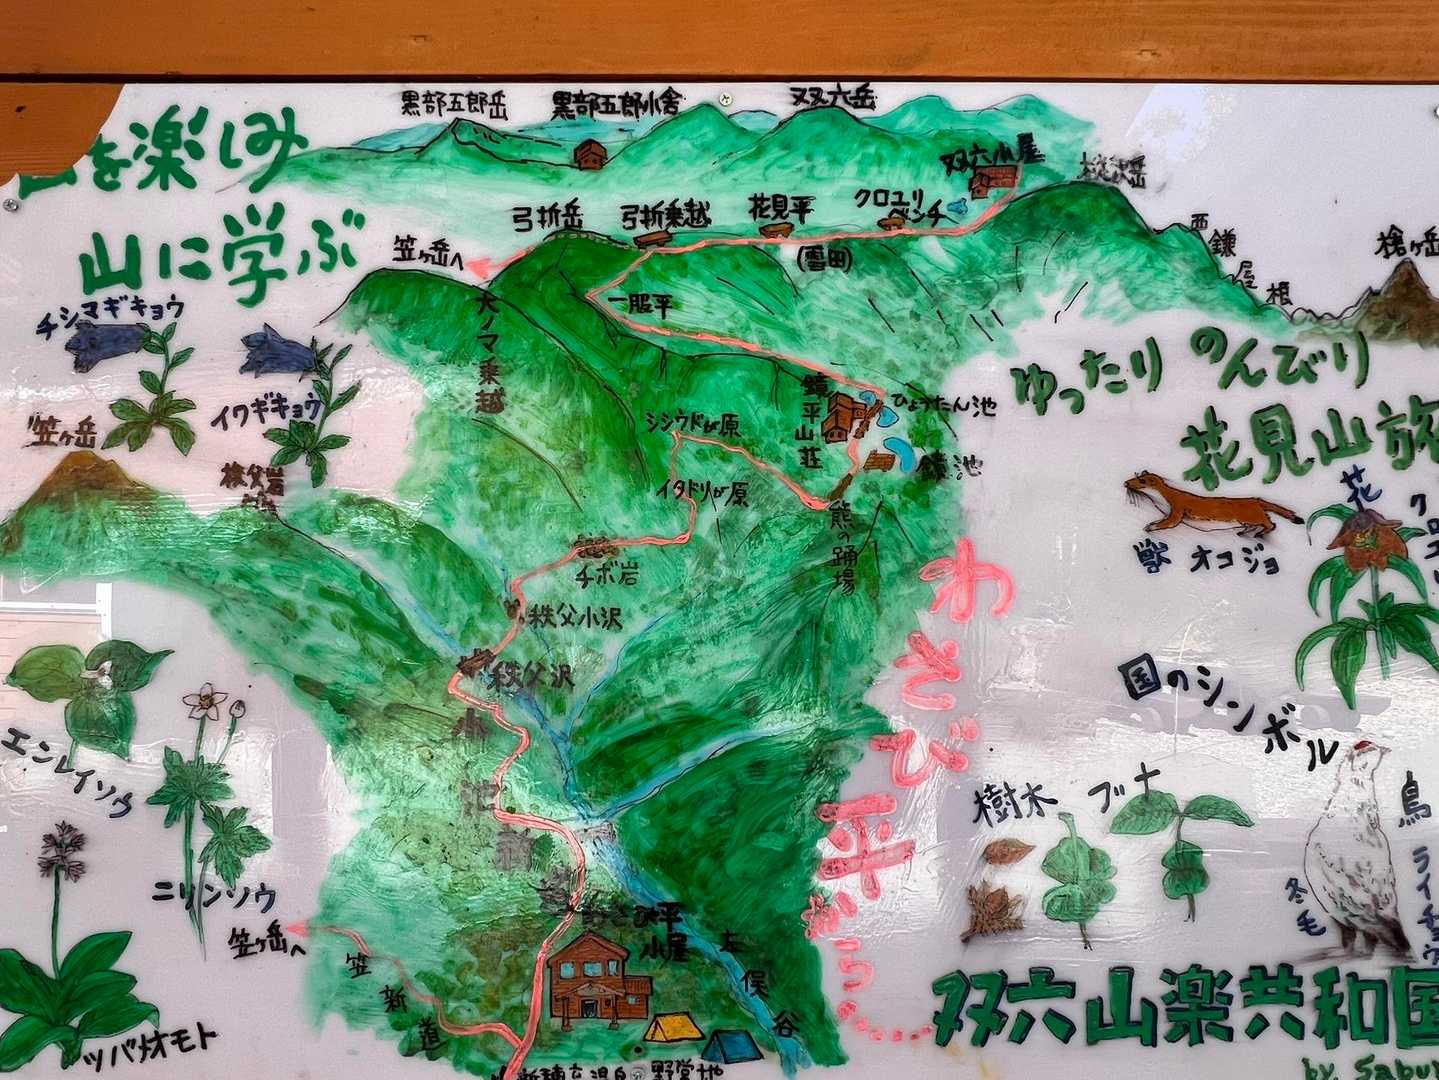 を楽しみ
山に学ぶ
黒部五郎岳
黒部五郎小舎
双六岳
双六小屋
樅沢岳
弓折岳
弓折乗越
花見平
クロユリ
ベンチ
(雪田)
笠ヶ岳へ
西
鎌
尾
根
槍ヶ岳
大ノマ乗越
一服平
鏡平山荘
ひょうたん池
鏡池
シシウドが原
イタドリが原
熊の踊場
チボ岩
秩父小沢
秩父沢
チシマギキョウ
イワギキョウ
笠ヶ岳
秩父岩
ゆったり のんびり
花見山旅
獣 オコジョ
花
国のシンボル
エンレイソウ
ニリンソウ
ツバメオモト
樹木
ブナ
鳥
ライチョウ
冬毛
わさび平から
わさび平
小屋
左
俣
谷
笠ヶ岳へ
笠
新
道
新穂高温泉
野営地
双六山楽共和国
by. Sabu